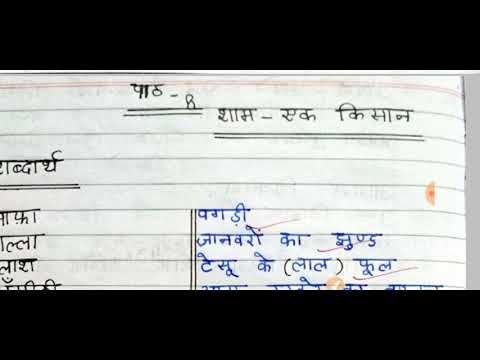 पाठ - 8
शाम - एक किसान
शब्दार्थ
साफ़ा पगड़ी
गल्ला जानवरों का झुण्ड
पलाश टेसू के (लाल) फूल